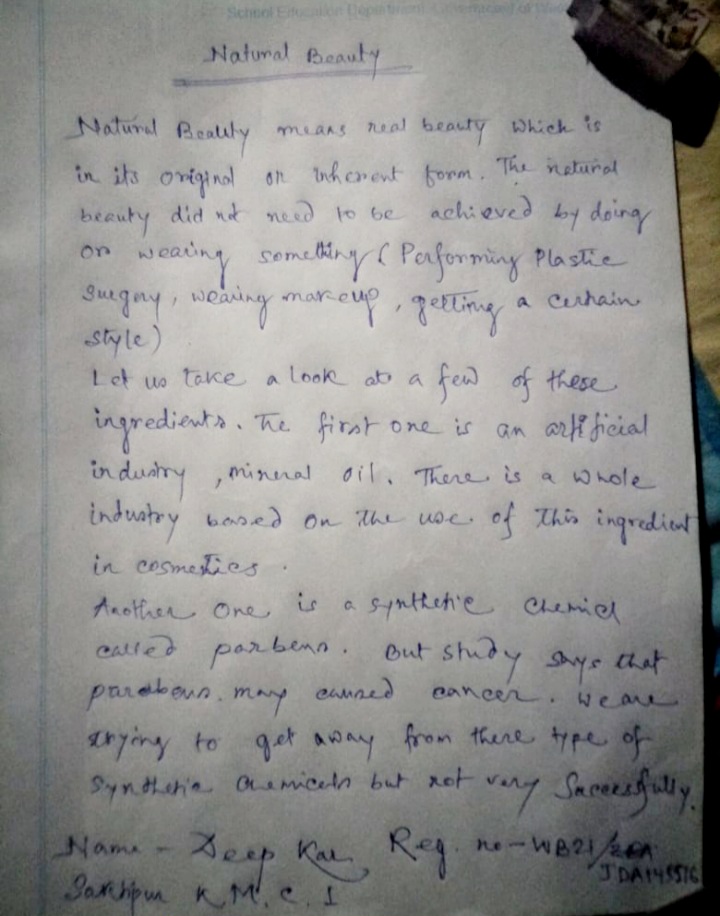 School Education Department, Government of West
Natural Beauty
Natural Beauty means real beauty which is
in its original or inherent form. The natural
beauty did not need to be achieved by doing
or wearing something (Performing Plastic
Surgery, wearing makeup, getting a certain
style)
Let us take a look at a few of these
ingredients. The first one is an artificial
industry, mineral oil. There is a whole
industry based on the use of this ingredient
in cosmetics.
Another one is a synthetic chemicl
called parbens. But study says that
parabens may caused cancer. We are
trying to get away from there type of
Synthetic chemicals but not very Successfully.
Name - Deep Kar Reg. no - WB21/
Sakhpur K.M.C.I